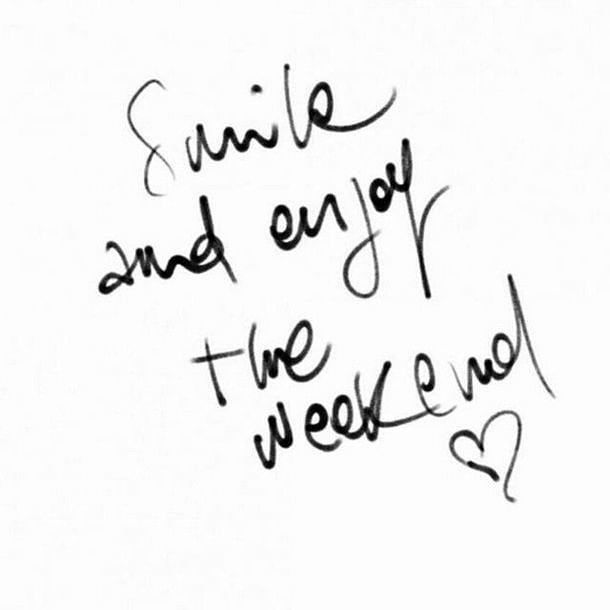 Smile
and enjoy
the
weekend